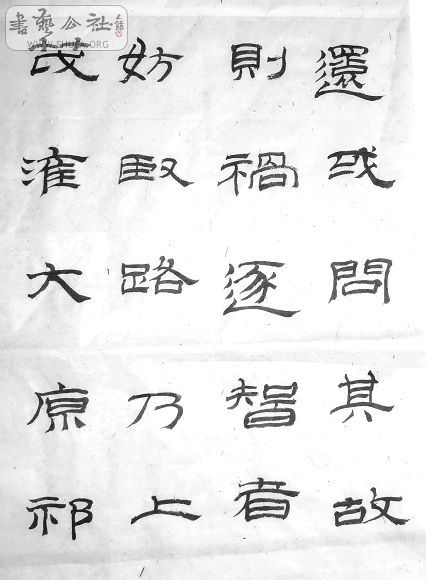 書藝公社
WWW.SHUFA.ORG
還或問其故
則禍逐智者
妨臤路乃上
茂淮大原祁